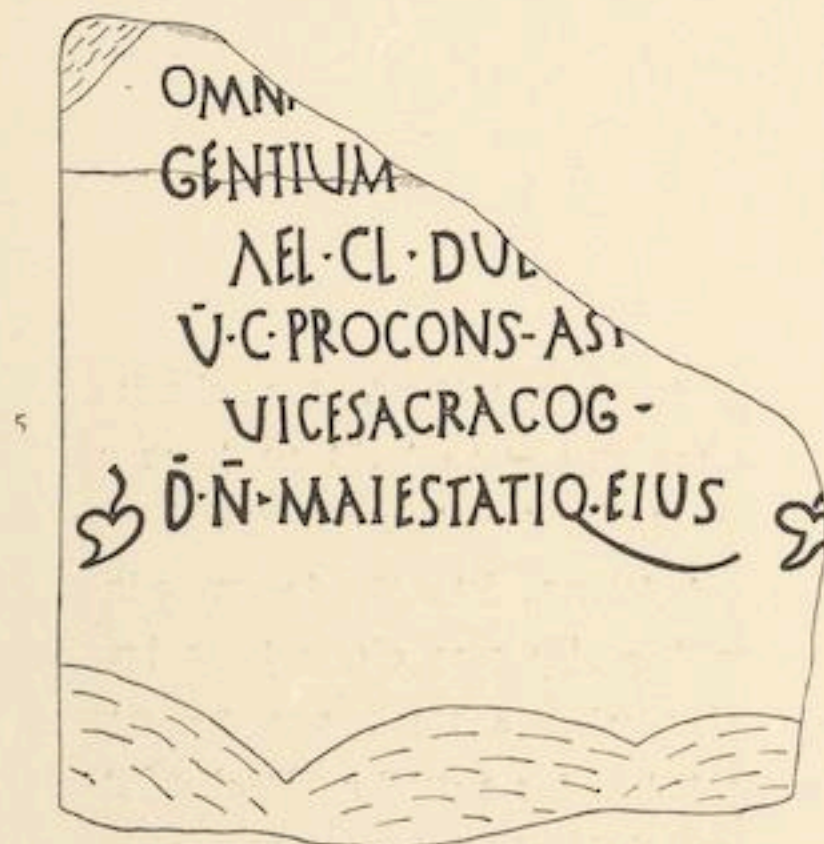 OMNI
GENTIUM
AEL·CL·DUL
V·C·PROCONS-ASI
VICESACRACOG-
5
D·N·MAIESTATIQ·EIUS